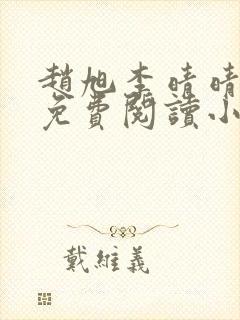 趙旭李晴晴
免費閱讀小
戴維義